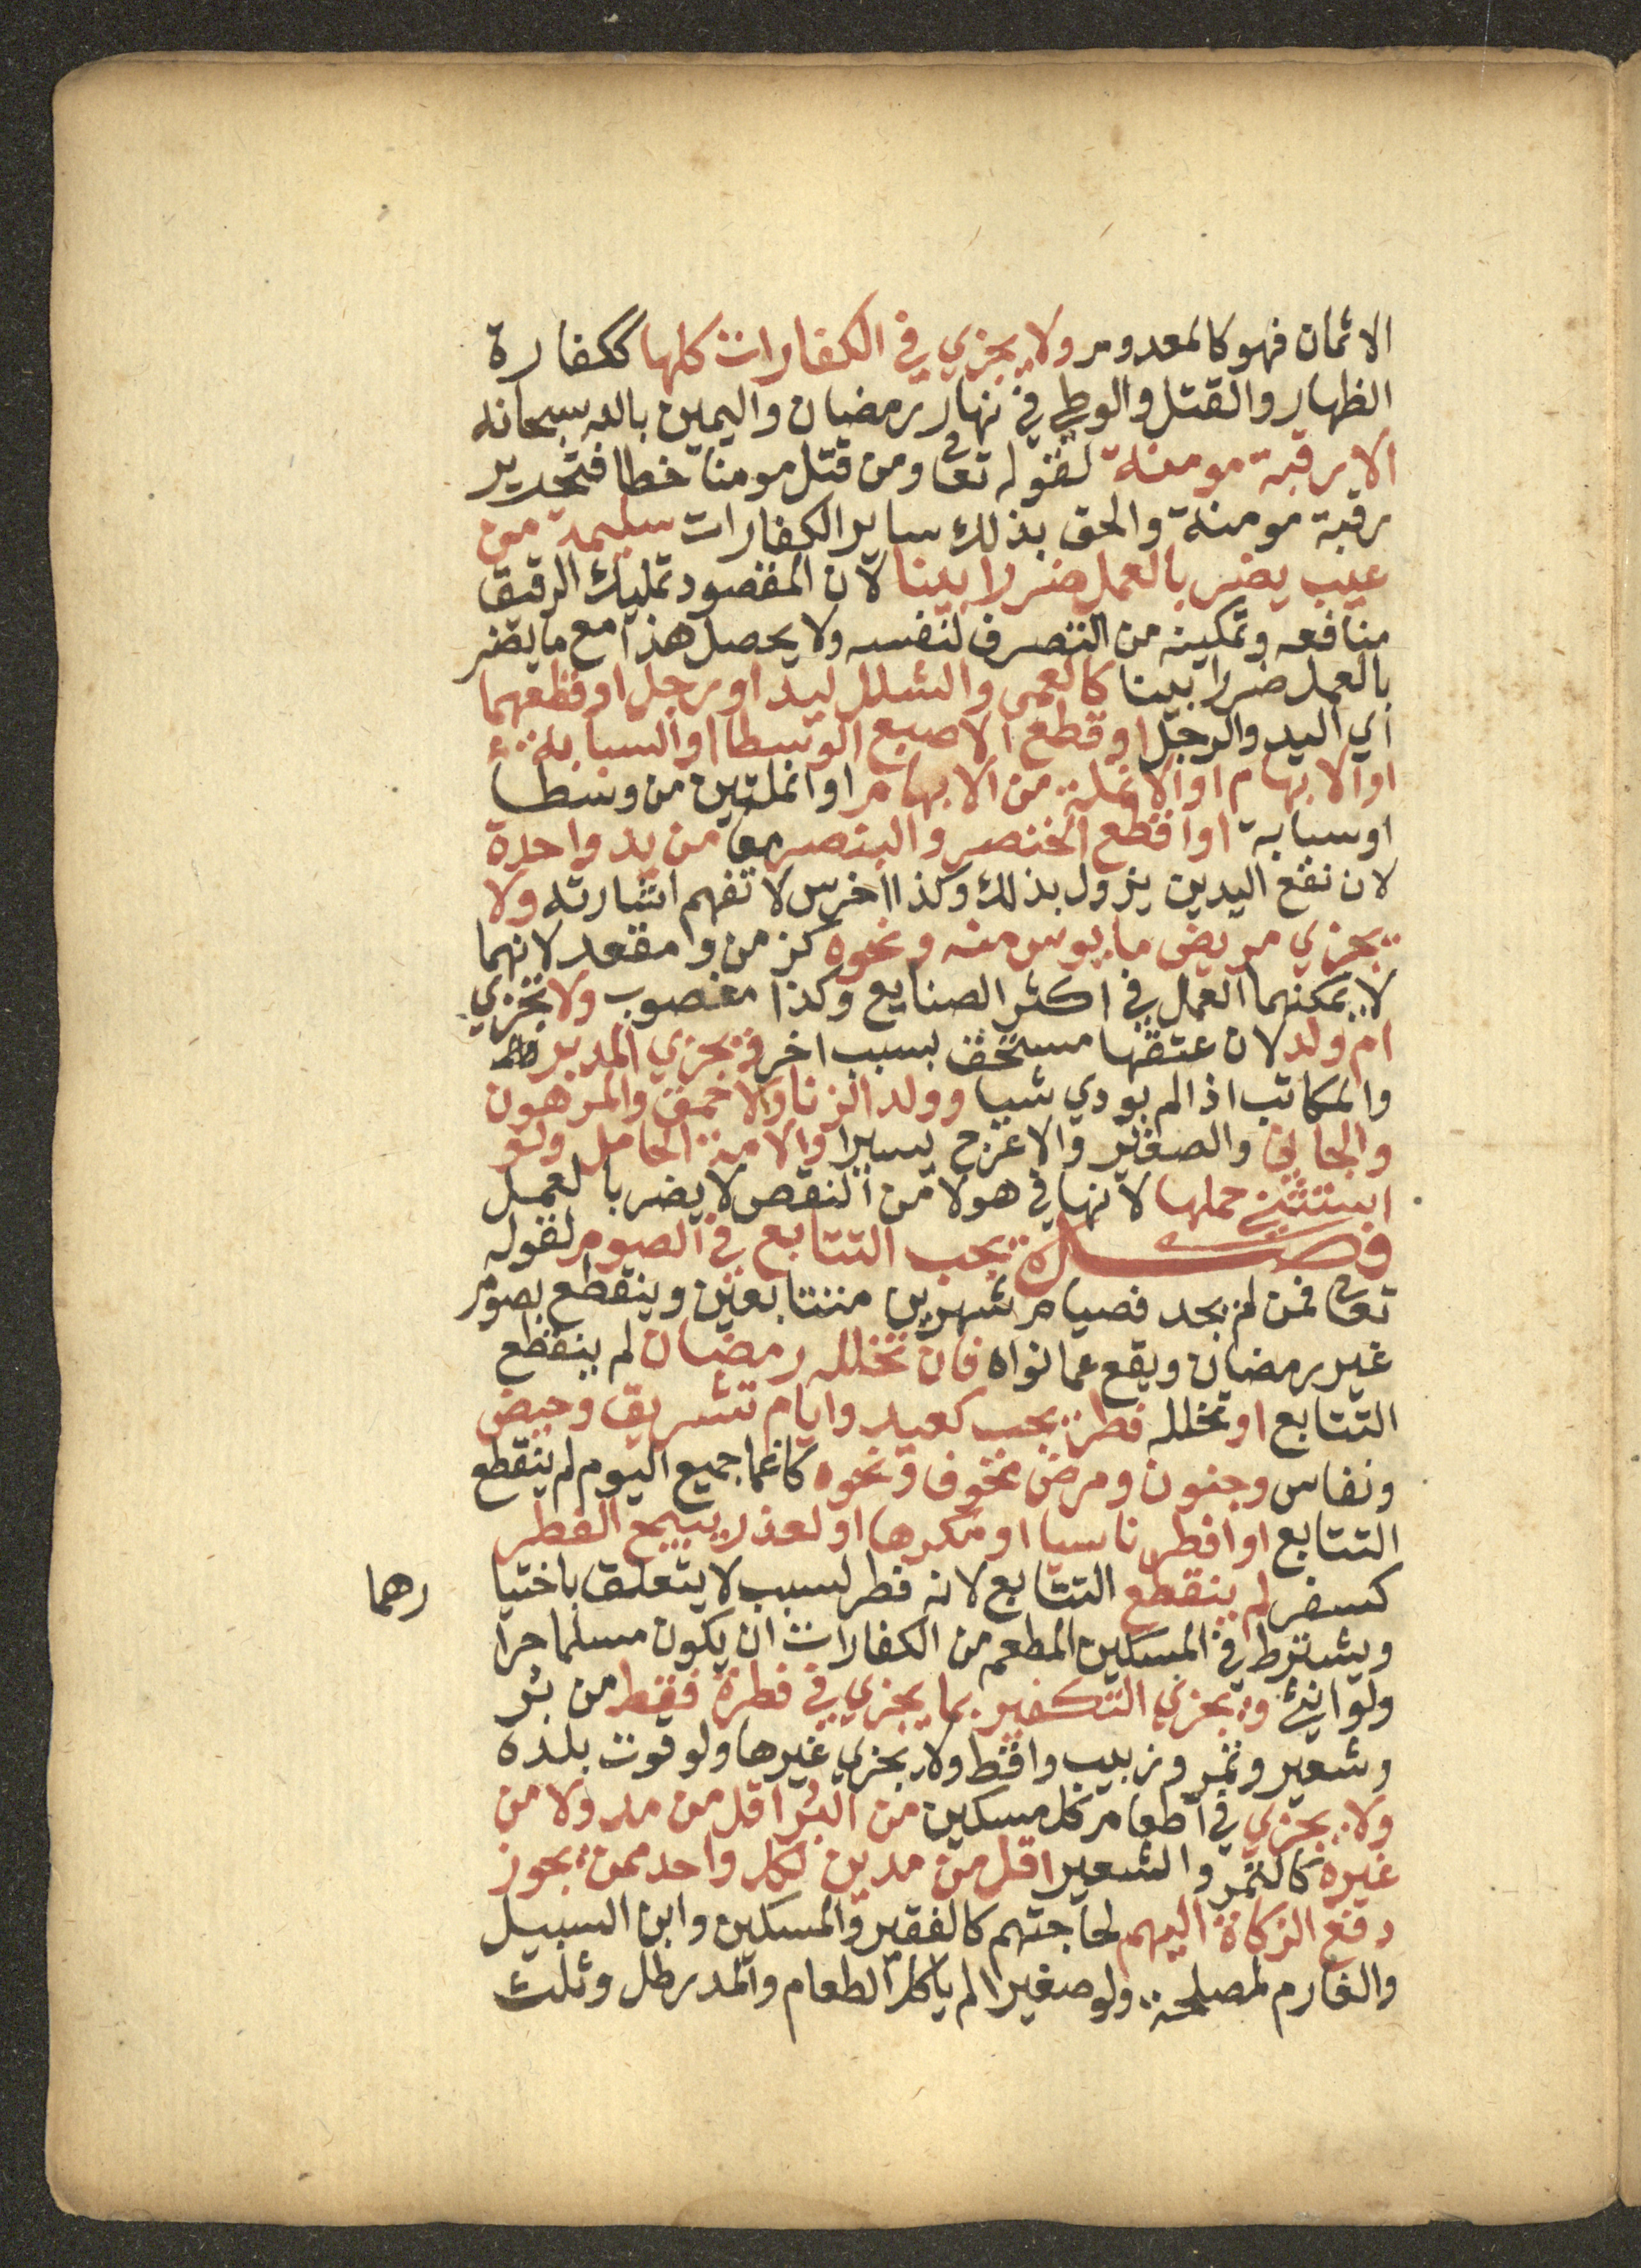 الاثمان فهو كالمعدوم ولا يجزي في الكفارات كلها ككفارة
الظهار والقتل والوطي في نهار رمضان واليمين بالله سبحانه
الا رقبة مومنة لقوله تعا ومن قتل مومنا خطا فتحرير
رقبة مومنة والحق بذلك ساير الكفارات سليمة من
عيب يضر بالعمل ضررا بينا لان المقصود تمليك الرقيق
منافعه وتمكينه من التصرف لنفسه ولا يحصل هذا مع ما يضر
بالعمل ضررا بينا كالعمى والشلل ليد او رجل او قطعهما
اي اليد والرجل او قطع الاصبع الوسطا او السبابة
او الابهام او الانملة من الابهام او انملتين من وسطا
او سبابة او اقطع الخنصر والبنصر معا من يد واحدة
لان نفع اليدين يزول بذلك وكذا اخرس لا تفهم اشارته ولا
يجزي مريض مايوس منه ونحوه كزمن ومقعد لانهما
لا يمكنهما العمل في اكثر الصنايع وكذا مغصوب ولا تجزي
ام ولد لان عتقها مستحق بسبب اخر ويجزي المدبر
والمكاتب اذا لم يودي شيا وولد الزنا والاحمق والمرهون
والجاني والصغير والاعرج يسيرا والامة الحامل ولو
استثني حملها لانها في هولا من النقص لا يضر بالعمل
فصل يجب التتابع في الصوم لقوله
تعا فمن لم يجد فصيام شهرين متتابعين وينقطع بصوم
غير رمضان ويقع عما نواه فان تخلله رمضان لم ينقطع
التتابع او تخلله فطر يجب كعيد وايام تشريق وحيض
ونفاس وجنون ومرض مخوف ونحوه كاغما جميع اليوم لم ينقطع
التتابع او افطر ناسيا او مكرها او لعذر يبيح الفطر
كسفر لم ينقطع التتابع لانه فطر لسبب لا يتعلق باختيا رهما
ويشترط في المسكين المطعم من الكفارات ان يكون مسلما حرا
ولو انثى ويجزي التكفير بما يجزي في فطرة فقط من بر
وشعير وتمر وزبيب واقط ولا يجزي غيرها ولو قوت بلده
ولا يجزي في اطعام كل مسكين من البر اقل من مد ولا من
غيره كالتمر والشعير اقل من مدين لكل واحد ممن يجوز
دفع الزكاة اليهم لحاجتهم كالفقير والمسكين وابن السبيل
والغارم لمصلحة ولو صغيرا لم ياكل الطعام والمد رطل وثلث